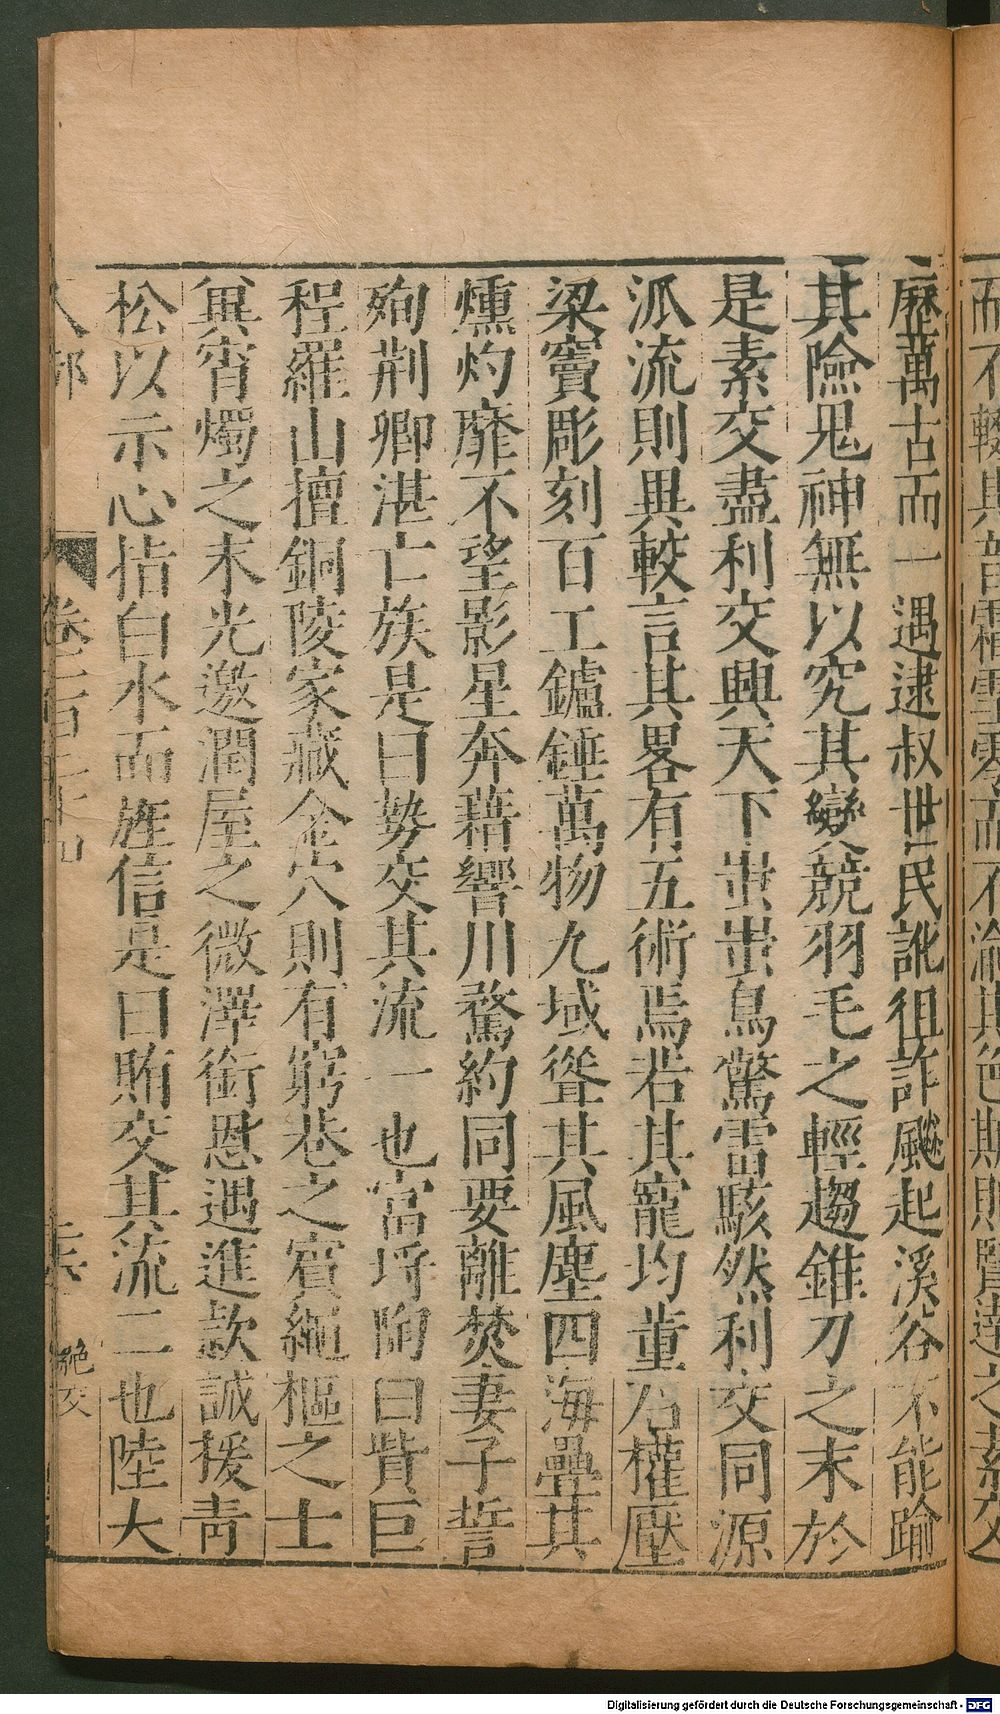 而不輟其音霜雪零而不渝其色斯則賢達之素交
歷萬古而一遇逮叔世民訛徂詐飈起溪谷不能踰
其險鬼神無以究其變競羽毛之輕趨錐刀之末於
是素交盡利交興天下蚩蚩鳥驚雷駭然利交同源
派流則異較言其畧有五術焉若其寵均董石權壓
梁竇彫刻百工鑪錘萬物九域聳其風塵四海疊其
燻灼靡不望影星奔藉響川騖約同要離焚妻子誓
殉荆卿湛亡族是曰勢交其流一也富埒陶白貲巨
程羅山擅銅陵家藏金穴則有窮巷之賓繩樞之士
冀宵燭之末光邀潤屋之微澤銜恩遇進款誠援青
松以示心指白水而旌信是曰賄交其流二也陸大
人部 卷二百 十四 絶交
Digitalisierung gefördert durch die Deutsche Forschungsgemeinschaft - DFG